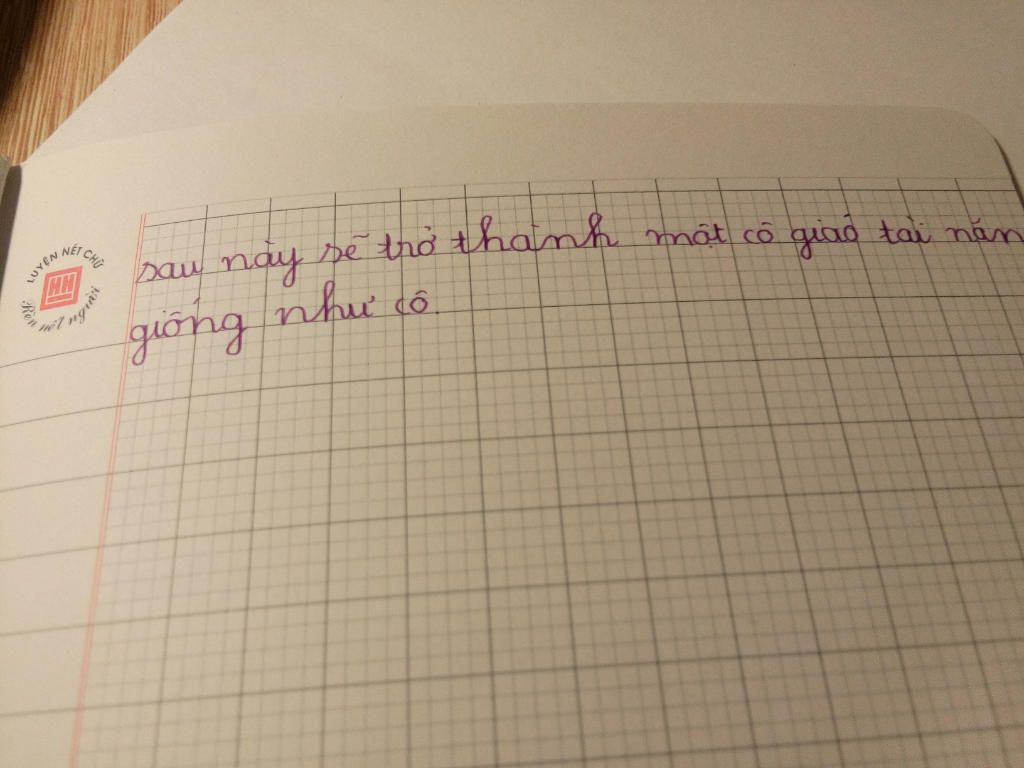 LUYỆN NÉT CHỮ
HH
Rèn nết người
sau này sẽ trở thành một cô giáo tài năn
giống như cô.